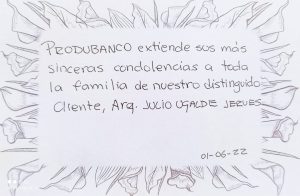 PRODUBANCO extiende sus más
sinceras condolencias a toda
la familia de nuestro distinguido
Cliente, Arq. JULIO UGALDE JERVES
01-06-22